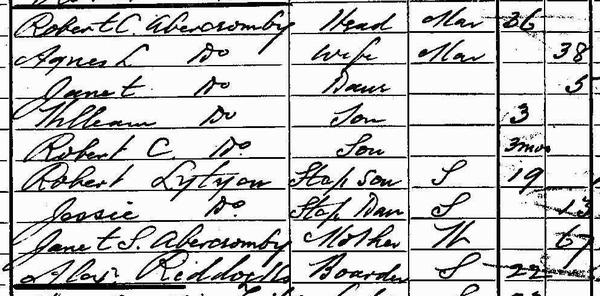 Robert C. Abercromby Head Mar 36
Agnes L Do Wife Mar 38
Janet Do Daur 5
William Do Son 3
Robert C. Do. Son 3mos
Robert Step Son S 19
Jessie Do. Step Daur S 13
Janet S. Abercromby Mother W 67
Boarder S 22